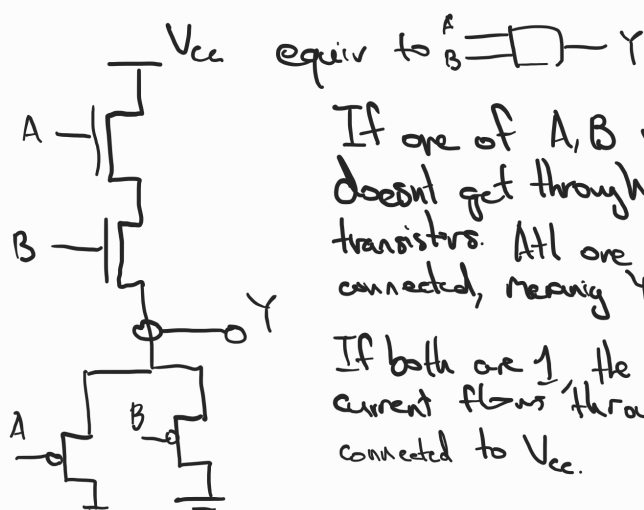 Vcc
equiv to A B Y
A
If one of A, B
doesnt get through
transistors. Atl one
B
connected, meanig
Y
If both are 1, the
current flows
A
B
connected to Vcc.